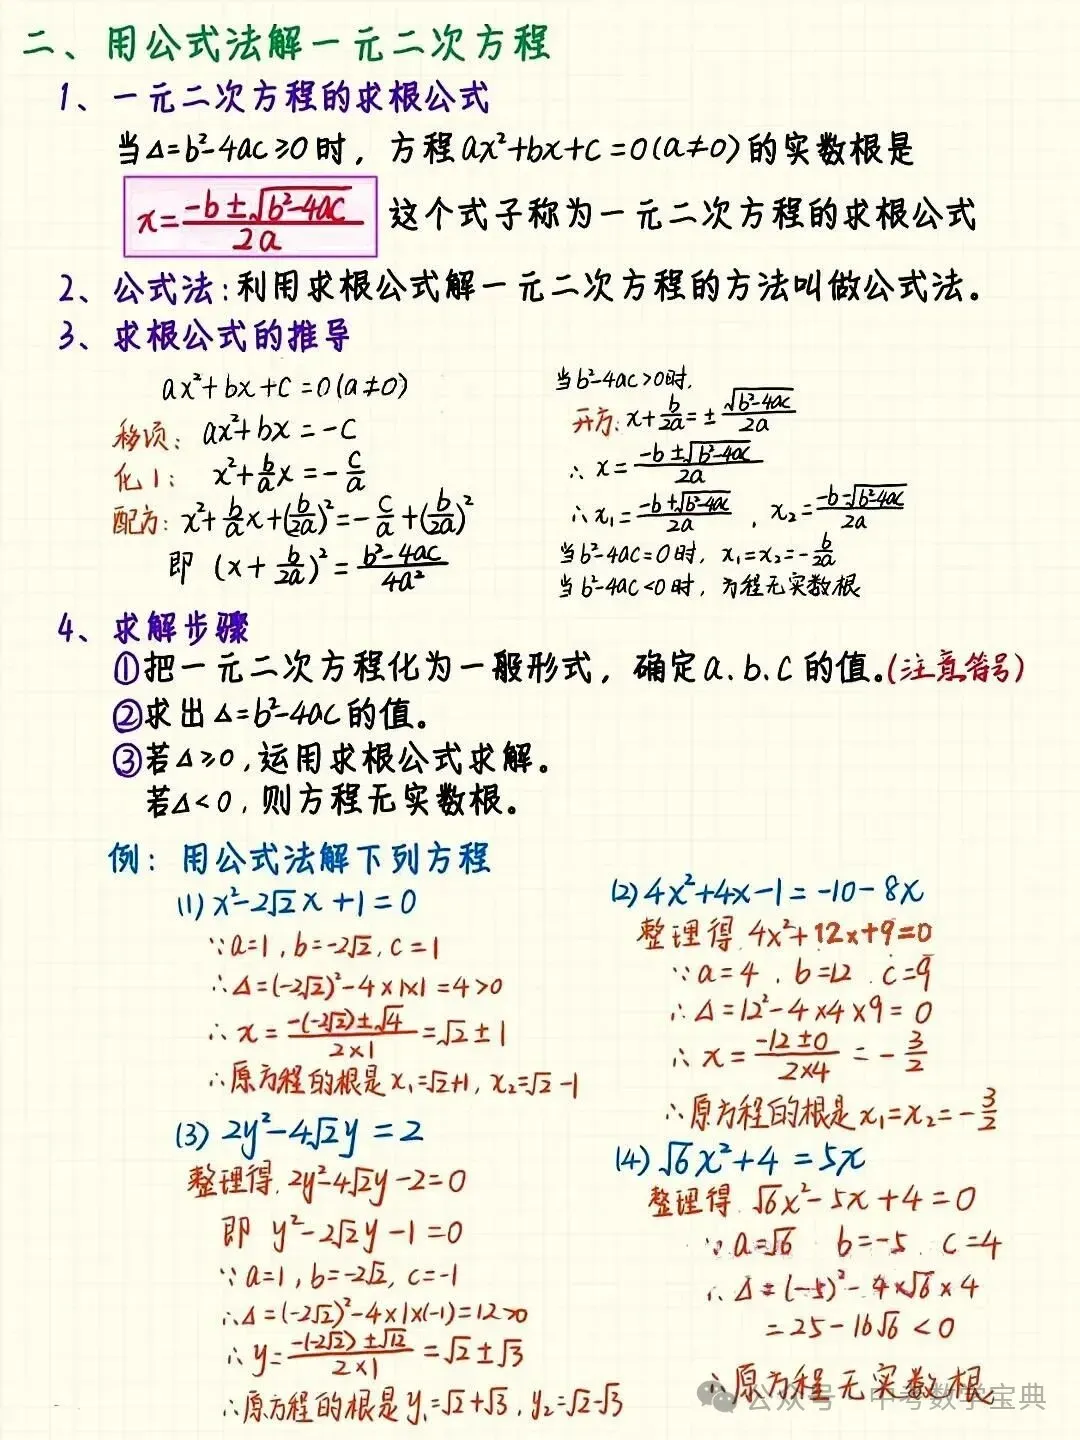 二、用公式法解一元二次方程
1、一元二次方程的求根公式
当Δ=b²-4ac≥0时，方程ax²+bx+c=0(a≠0)的实数根是
x=(-b±√(b²-4ac))/(2a) 这个式子称为一元二次方程的求根公式
2、公式法:利用求根公式解一元二次方程的方法叫做公式法。
3、求根公式的推导
ax²+bx+c=0(a≠0)
移项: ax²+bx=-c
化1: x²+(b/a)x=-c/a
配方: x²+(b/a)x+(b/2a)²=-c/a+(b/2a)²
即 (x+b/2a)²=(b²-4ac)/(4a²)
当b²-4ac>0时,
开方: x+b/2a=±√(b²-4ac)/(2a)
∴ x=(-b±√(b²-4ac))/(2a)
∴x₁=(-b+√(b²-4ac))/(2a) , x₂=(-b-√(b²-4ac))/(2a)
当b²-4ac=0时, x₁=x₂=-b/2a
当b²-4ac<0时, 方程无实数根
4、求解步骤
①把一元二次方程化为一般形式，确定a.b.c的值。(注意符号)
②求出Δ=b²-4ac的值。
③若Δ≥0,运用求根公式求解。
若Δ<0,则方程无实数根。
例: 用公式法解下列方程
(1) x²-2√2x+1=0
∵a=1,b=-2√2,c=1
∴Δ=(-2√2)²-4×1×1=4>0
∴ x=(-(-2√2)±√4)/(2×1)=√2±1
∴原方程的根是x₁=√2+1, x₂=√2-1
(2) 4x²+4x-1=-10-8x
整理得,4x²+12x+9=0
∵a=4 , b=12 , c=9
∴Δ=12²-4×4×9=0
∴ x=(-12±0)/(2×4)=-3/2
∴原方程的根是x₁=x₂=-3/2
(3) 2y²-4√2y=2
整理得,2y²-4√2y-2=0
即 y²-2√2y-1=0
∵a=1,b=-2√2,c=-1
∴Δ=(-2√2)²-4×1×(-1)=12>0
∴y=(-(-2√2)±√12)/(2×1)=√2±√3
∴原方程的根是y₁=√2+√3, y₂=√2-√3
(4) √6x²+4=5x
整理得,√6x²-5x+4=0
∵a=√6 b=-5 , c=4
∴Δ=(-5)²-4×√6×4
=25-16√6<0
∴原方程无实数根
公众号·中考数学宝典